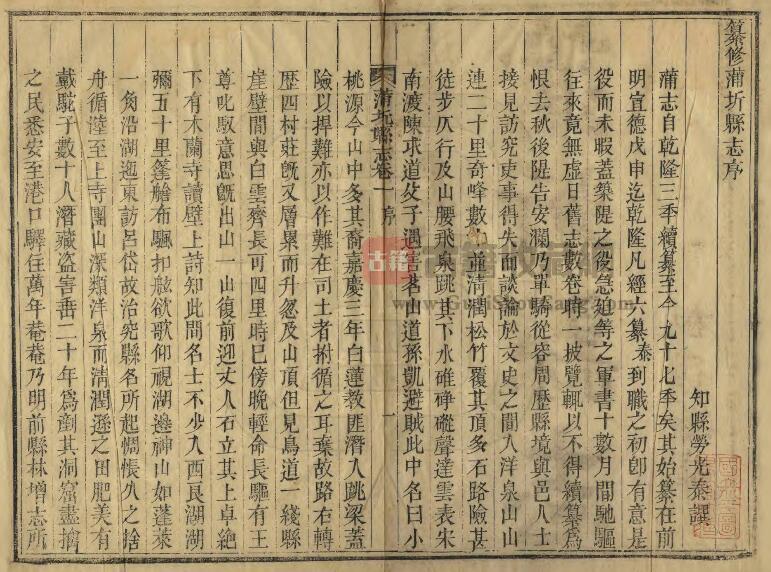 纂修蒲圻縣志序
知縣勞光泰譔
蒲志自乾隆三季續纂至今九十七季矣其始纂在前
明宜德戊申迄乾隆凡經六纂泰到職之初卽有意是
役而未暇蓋築隄之役急迫等之軍書十數月間馳驅
往來竟無虛日舊志數卷時一披覽輒以不得續纂爲
恨去秋後隄告安瀾乃單騎從容周歷縣境與邑人士
接見訪究吏事得失而談論於文史之間入洋泉山山
連二十里奇峰數並清潤松竹覆其頂多石路險甚
徒步仄行及山腰飛泉跳其下水碓磫聲達雲表宋
蒲圻縣志卷一 序 一
南渡陳求道父子遇害茗山道孫凱避賊此中名曰小
桃源今山中多其裔嘉慶三年白蓮教匪潛人跳梁蓋
險以捍難亦以作難在司土者拊循之耳棄故路右轉
歷四村莊旣又層累而升忽及山頂但見鳥道一綫縣
崖壁間與白雲齊長可四里時巳傍晚輕命長驅有王
尊叱馭意思旣出山一山復前迎丈人石立其上卓絶
下有木蘭寺讀壁上詩知此間名士不少入西艮湖湖
彌五十里篷艙布颿扣舷欲歌仰視湖邊神山如蓬萊
一角沿湖迤東訪呂岱故治究縣名所起惆悵久之捨
舟循陸至上寺團山深類洋泉而清潤遜之田肥美有
戴駝子數十人潛藏盜害垂二十年爲剷其洞窟盡擒
之民悉安至港口驛住萬年菴菴乃明前縣林增志所